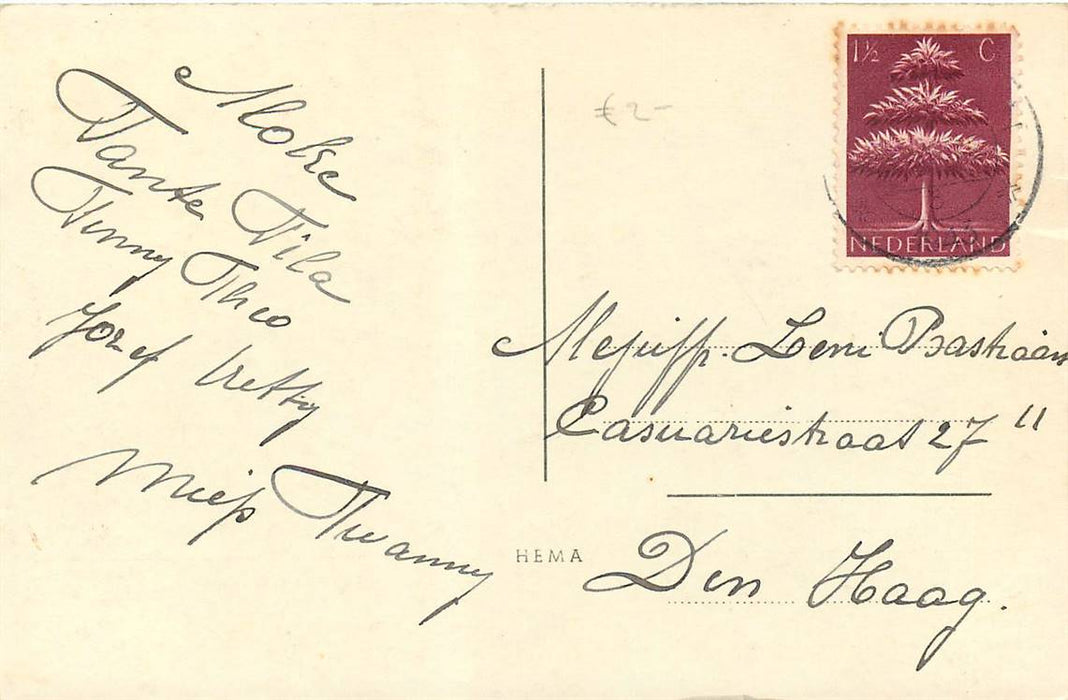 Tante Tila
Tinny Theo
Jozef Netty
Miep Twanny
€ 2-
1½ C
NEDERLAND
Mejuffr. Leni Bastiaans
Casuariestraat 27 "
Den Haag.
HEMA